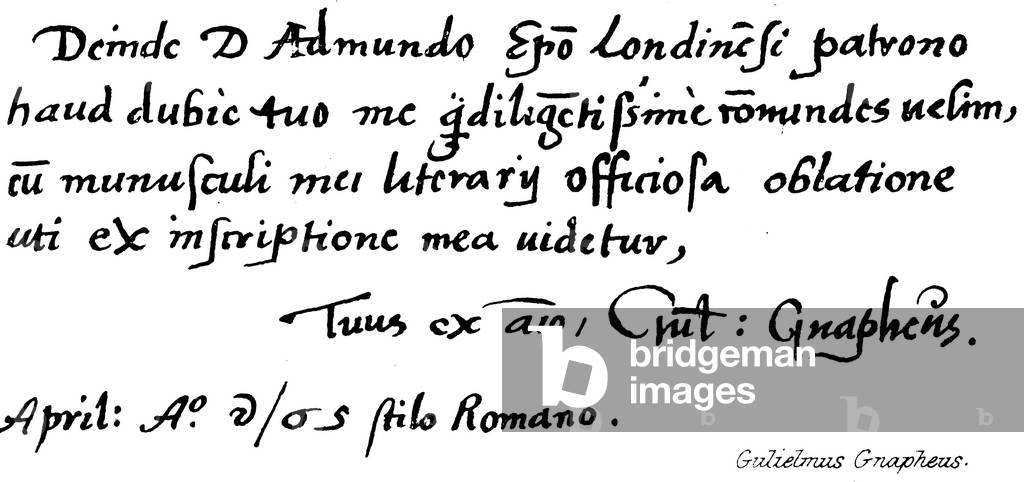 Deinde D Admundo Epō Londinēsi patrono
haud dubiè tuo me q̃ diligētissimè cōmendes uelim,
cū munusculi mei literarij officiosa oblatione
uti ex inscriptione mea uidetur,
Tuus ex aīo, Guil: Gnapheus.
April: Aº. stilo Romano.
bridgeman
images
Gulielmus Gnapheus.